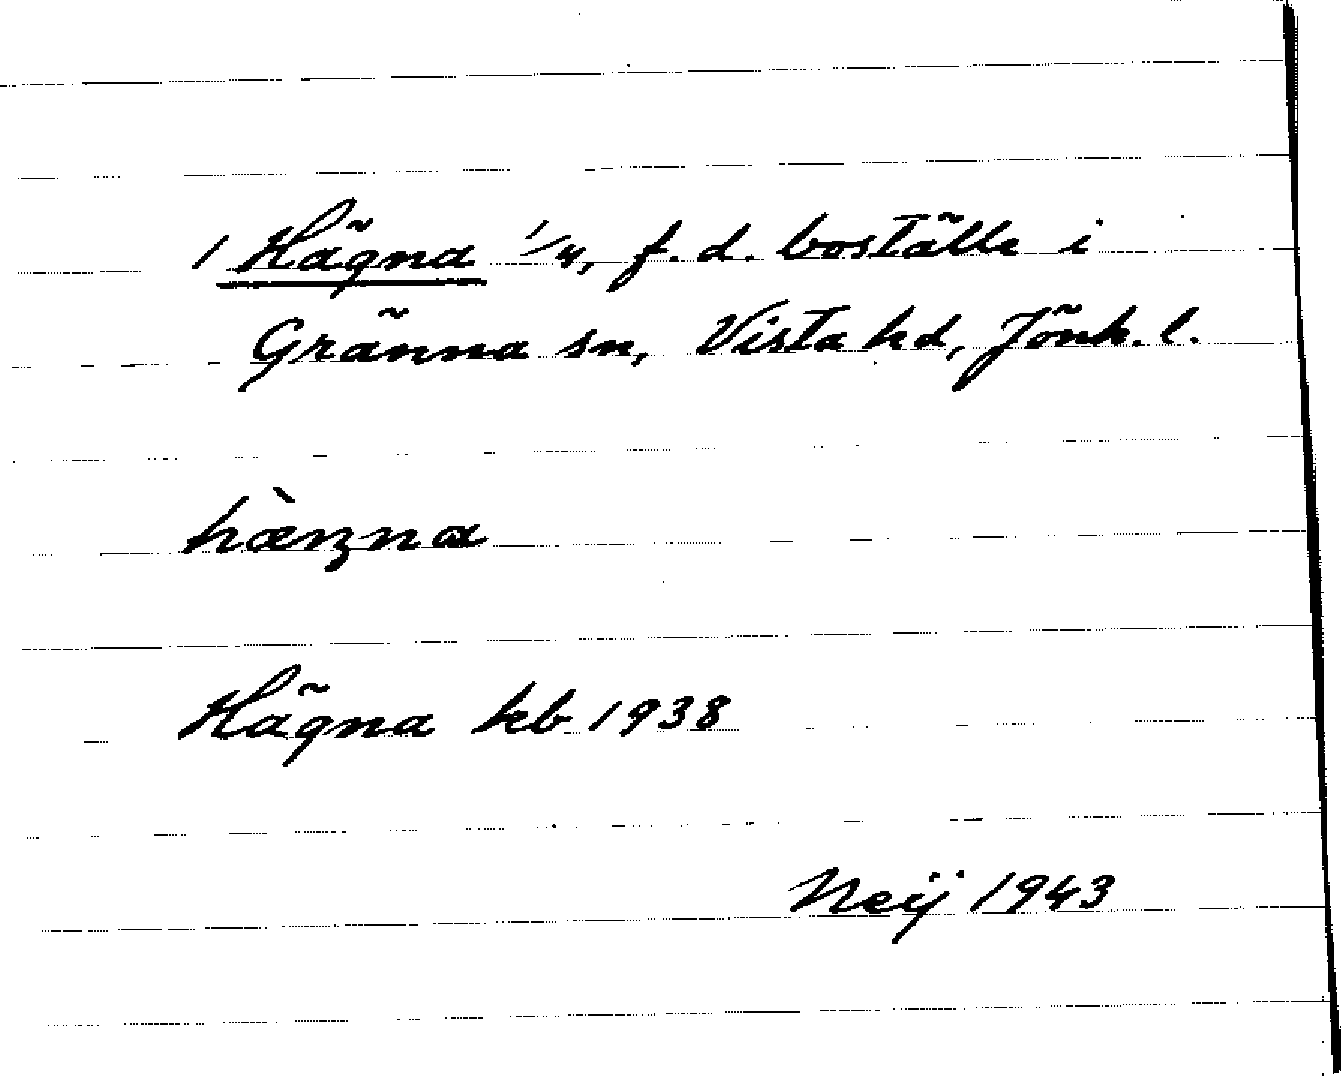 1 Hägna 1/4, f. d. boställe i
Gränna sn, Vista hd, Jönk. l.
hæ̀ŋna
Hägna kb 1938
Neij 1943